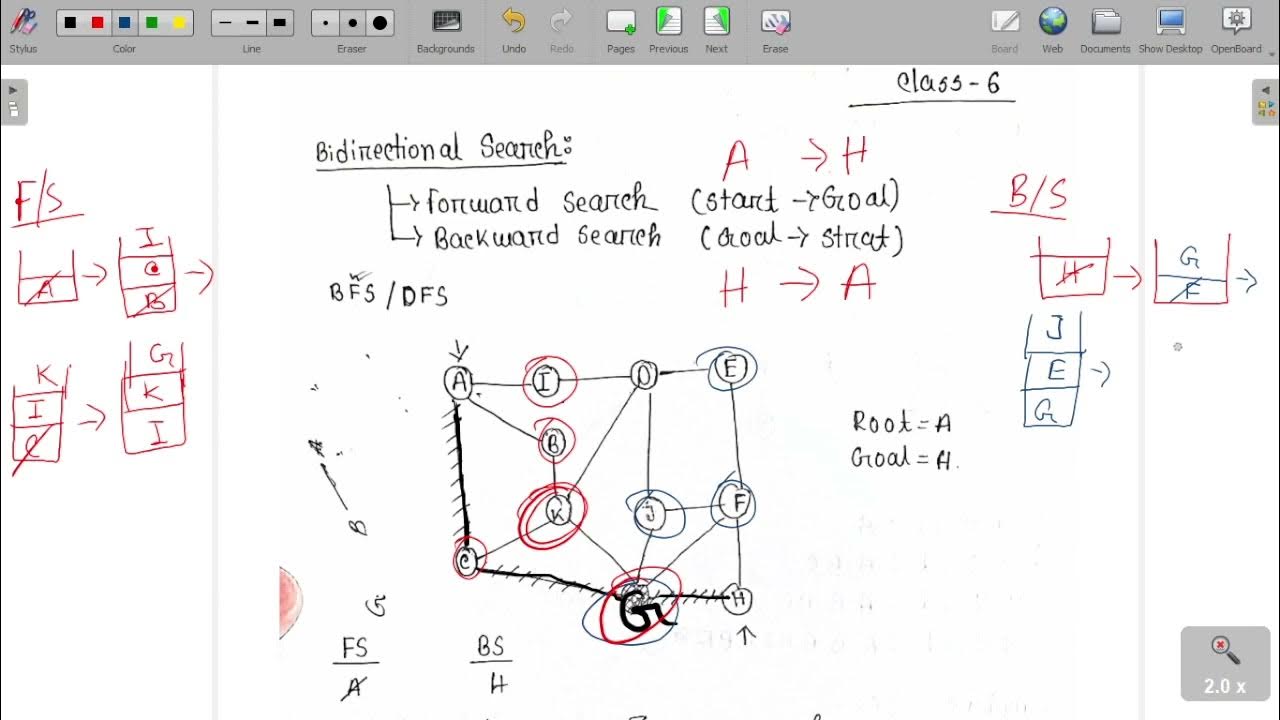 Stylus
Color
Line
Eraser
Backgrounds
Undo
Redo
Pages
Previous
Next
Erase
Board
Web
Documents
Show Desktop
OpenBoard
Class-6
Bidirectional Search:
A → H
Forward Search (Start → Goal)
Backward Search (Goal → Strat)
BFS / DFS
H → A
F/S
A → I C B →
K I C → G K I
B/S
H → G F →
J E G →
A I D E
B
K J F
C G H
Root = A
Goal = H.
B
G
FS BS
A H
2.0 x